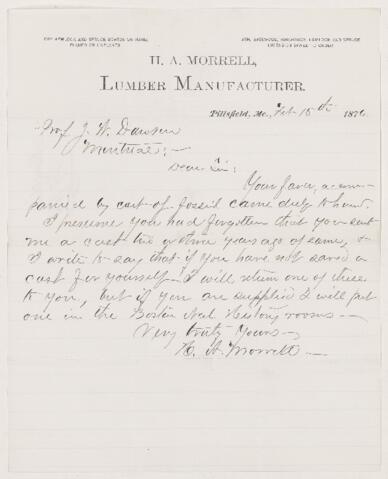 DRY HEMLOCK AND SPRUCE BOARDS ON HAND.
PLANED OR UNPLANED
ASH, BASSWOOD, HARDWOOD, HEMLOCK AND SPRUCE
DIMENSION SAWED TO ORDER
H. A. MORRELL,
LUMBER MANUFACTURER.
Pittsfield, Me., Feb 15th 1876
Prof J. W. Dawson
Montreal:—
Dear Sir:
Your favor, accom-
panied by cast of fossil came duly to hand.
I presume you had forgotten that you sent
me a cast two or three years ago of same, &
I write to say that if you have not saved a
cast for yourself— I will return one of these
to you, but if you are supplied I will put
one in the Boston Nat. History rooms—
Very truly Yours—
H. A. Morrell—